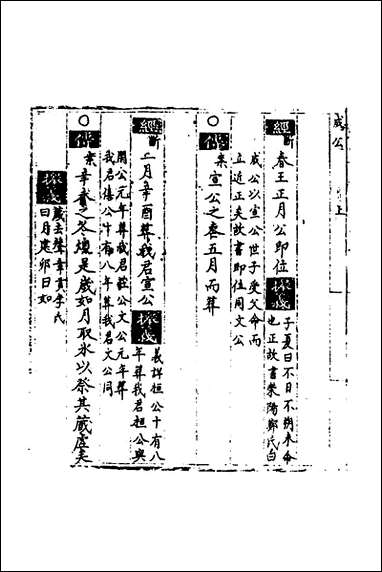 成公 上
經 斷 春王正月公即位
子夏曰不日不朔未命
也正故書滎陽鄭氏白
成公以宣公世子受父命而
立近正矣故書即位同文公
傳
案 宣公之 五月而葬
經 斷 二月辛酉葬我君宣公
義詳桓公十有八
年葬我君桓公與
閔公元年葬我君莊公文公元年葬
我君僖公十有八年葬我君文公同
傳
案 之冬燠是歲如月取冰以祭其藏虛矣
去聲 李氏
曰月建卯曰如